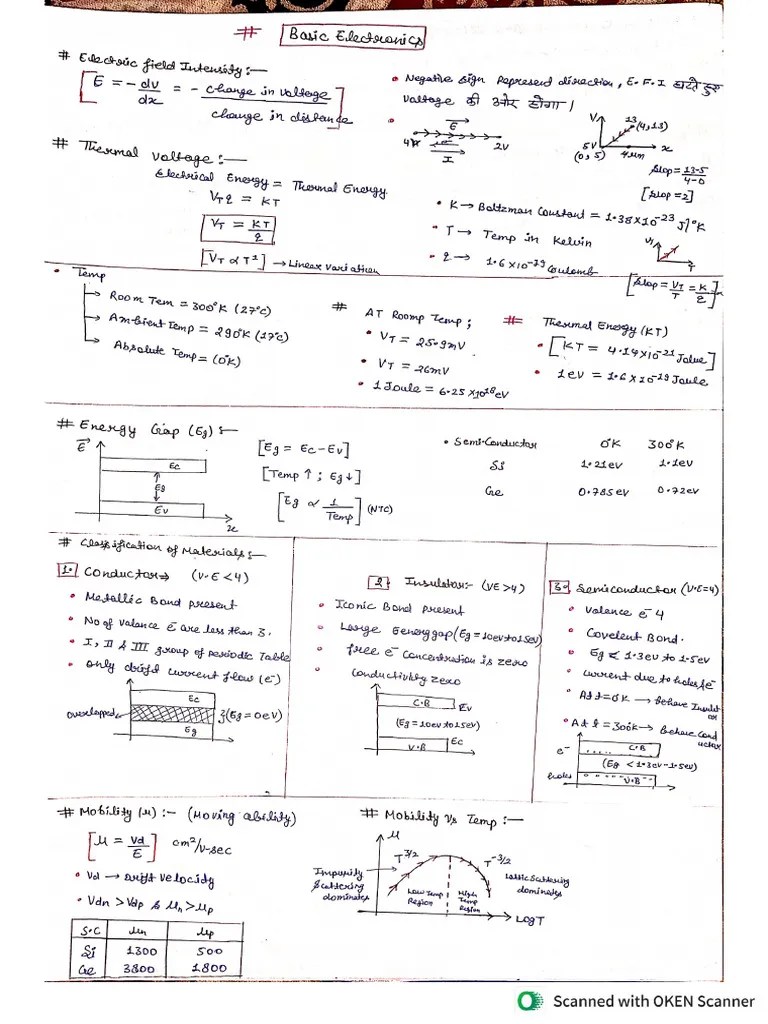 # Basic Electronics
# Electric field Intensity:—
[E = -dv/dx = - change in voltage / change in distance]
• Negative Sign Represent direction, E.F.I घटते हुए
voltage की ओर होगा।
E
4V 2V
I
V 13 (4,13)
5V x
(0,5) 4μm
Slop = 13-5/4-0
[Slop = 2]
# Thermal Voltage:—
Electrical Energy = Thermal Energy
VTq = KT
VT = KT/q
[VT ∝ T¹] → Linear Variation
• K → Boltzman Constant = 1.38×10⁻²³ J/°K
• T → Temp in Kelvin
• q → 1.6×10⁻¹⁹ Coulomb
VT
T
[Slop = VT/T = K/q]
• Temp
Room Tem = 300°K (27°C)
Ambient Temp = 290°K (17°C)
Absolute Temp = (0°K)
# AT Roomp Temp;
• VT = 25.9mV
• VT = 26mV
• 1 Joule = 6.25×10¹⁸eV
# Thermal Energy (KT)
• [KT = 4.14×10⁻²¹ Joule]
• 1eV = 1.6×10⁻¹⁹ Joule
# Energy Gap (Eg):—
E
Ec
Eg
Ev
x
[Eg = Ec-Ev]
[Temp ↑ ; Eg↓]
[Eg ∝ 1/Temp] (NTC)
• Semi-Conductor 0°K 300°K
Si 1.21ev 1.1ev
Ge 0.785ev 0.72ev
# Classification of Materials:—
1. Conductor→ (V.E<4)
• Metallic Bond present
• No of Valance e̅ are less than 3.
• I, II & III group of periodic Table
• only drift current flow (e⁻)
Ec
overlapped (Eg=0eV)
Eg
2 Insulator:- (VE>4)
• Iconic Bond present
• Large Energy gap (Eg=10ev to 15ev)
• free e⁻ Concentration is zero
• Conductivity zero
C.B Ev
(Eg=10ev to 15ev)
V.B Ec
3. Semiconductor (V.E=4)
• Valance e⁻ 4
• Covelent Bond.
• Eg < 1.3ev to 1.5ev
• Current due to holes & e⁻
• At t=0K → behave Insulat
or
• At t = 300K → Behave Cond
uctor
e⁻ C.B
(Eg < 1.3ev-1.5ev)
holes V.B
# Mobility (μ):- (Moving ability)
[μ = Vd/E] cm²/v-sec
• Vd → Drift Velocity
• Vdn > Vdp & μn > μp
S.C μn μp
Si 1300 500
Ge 3800 1800
# Mobility Vs Temp:—
μ
T^3/2 T^-3/2
Impurity
Scattering
dominates
Lattic Scattering
dominates
Low Temp
Region
High
Temp
Region
LogT
Scanned with OKEN Scanner